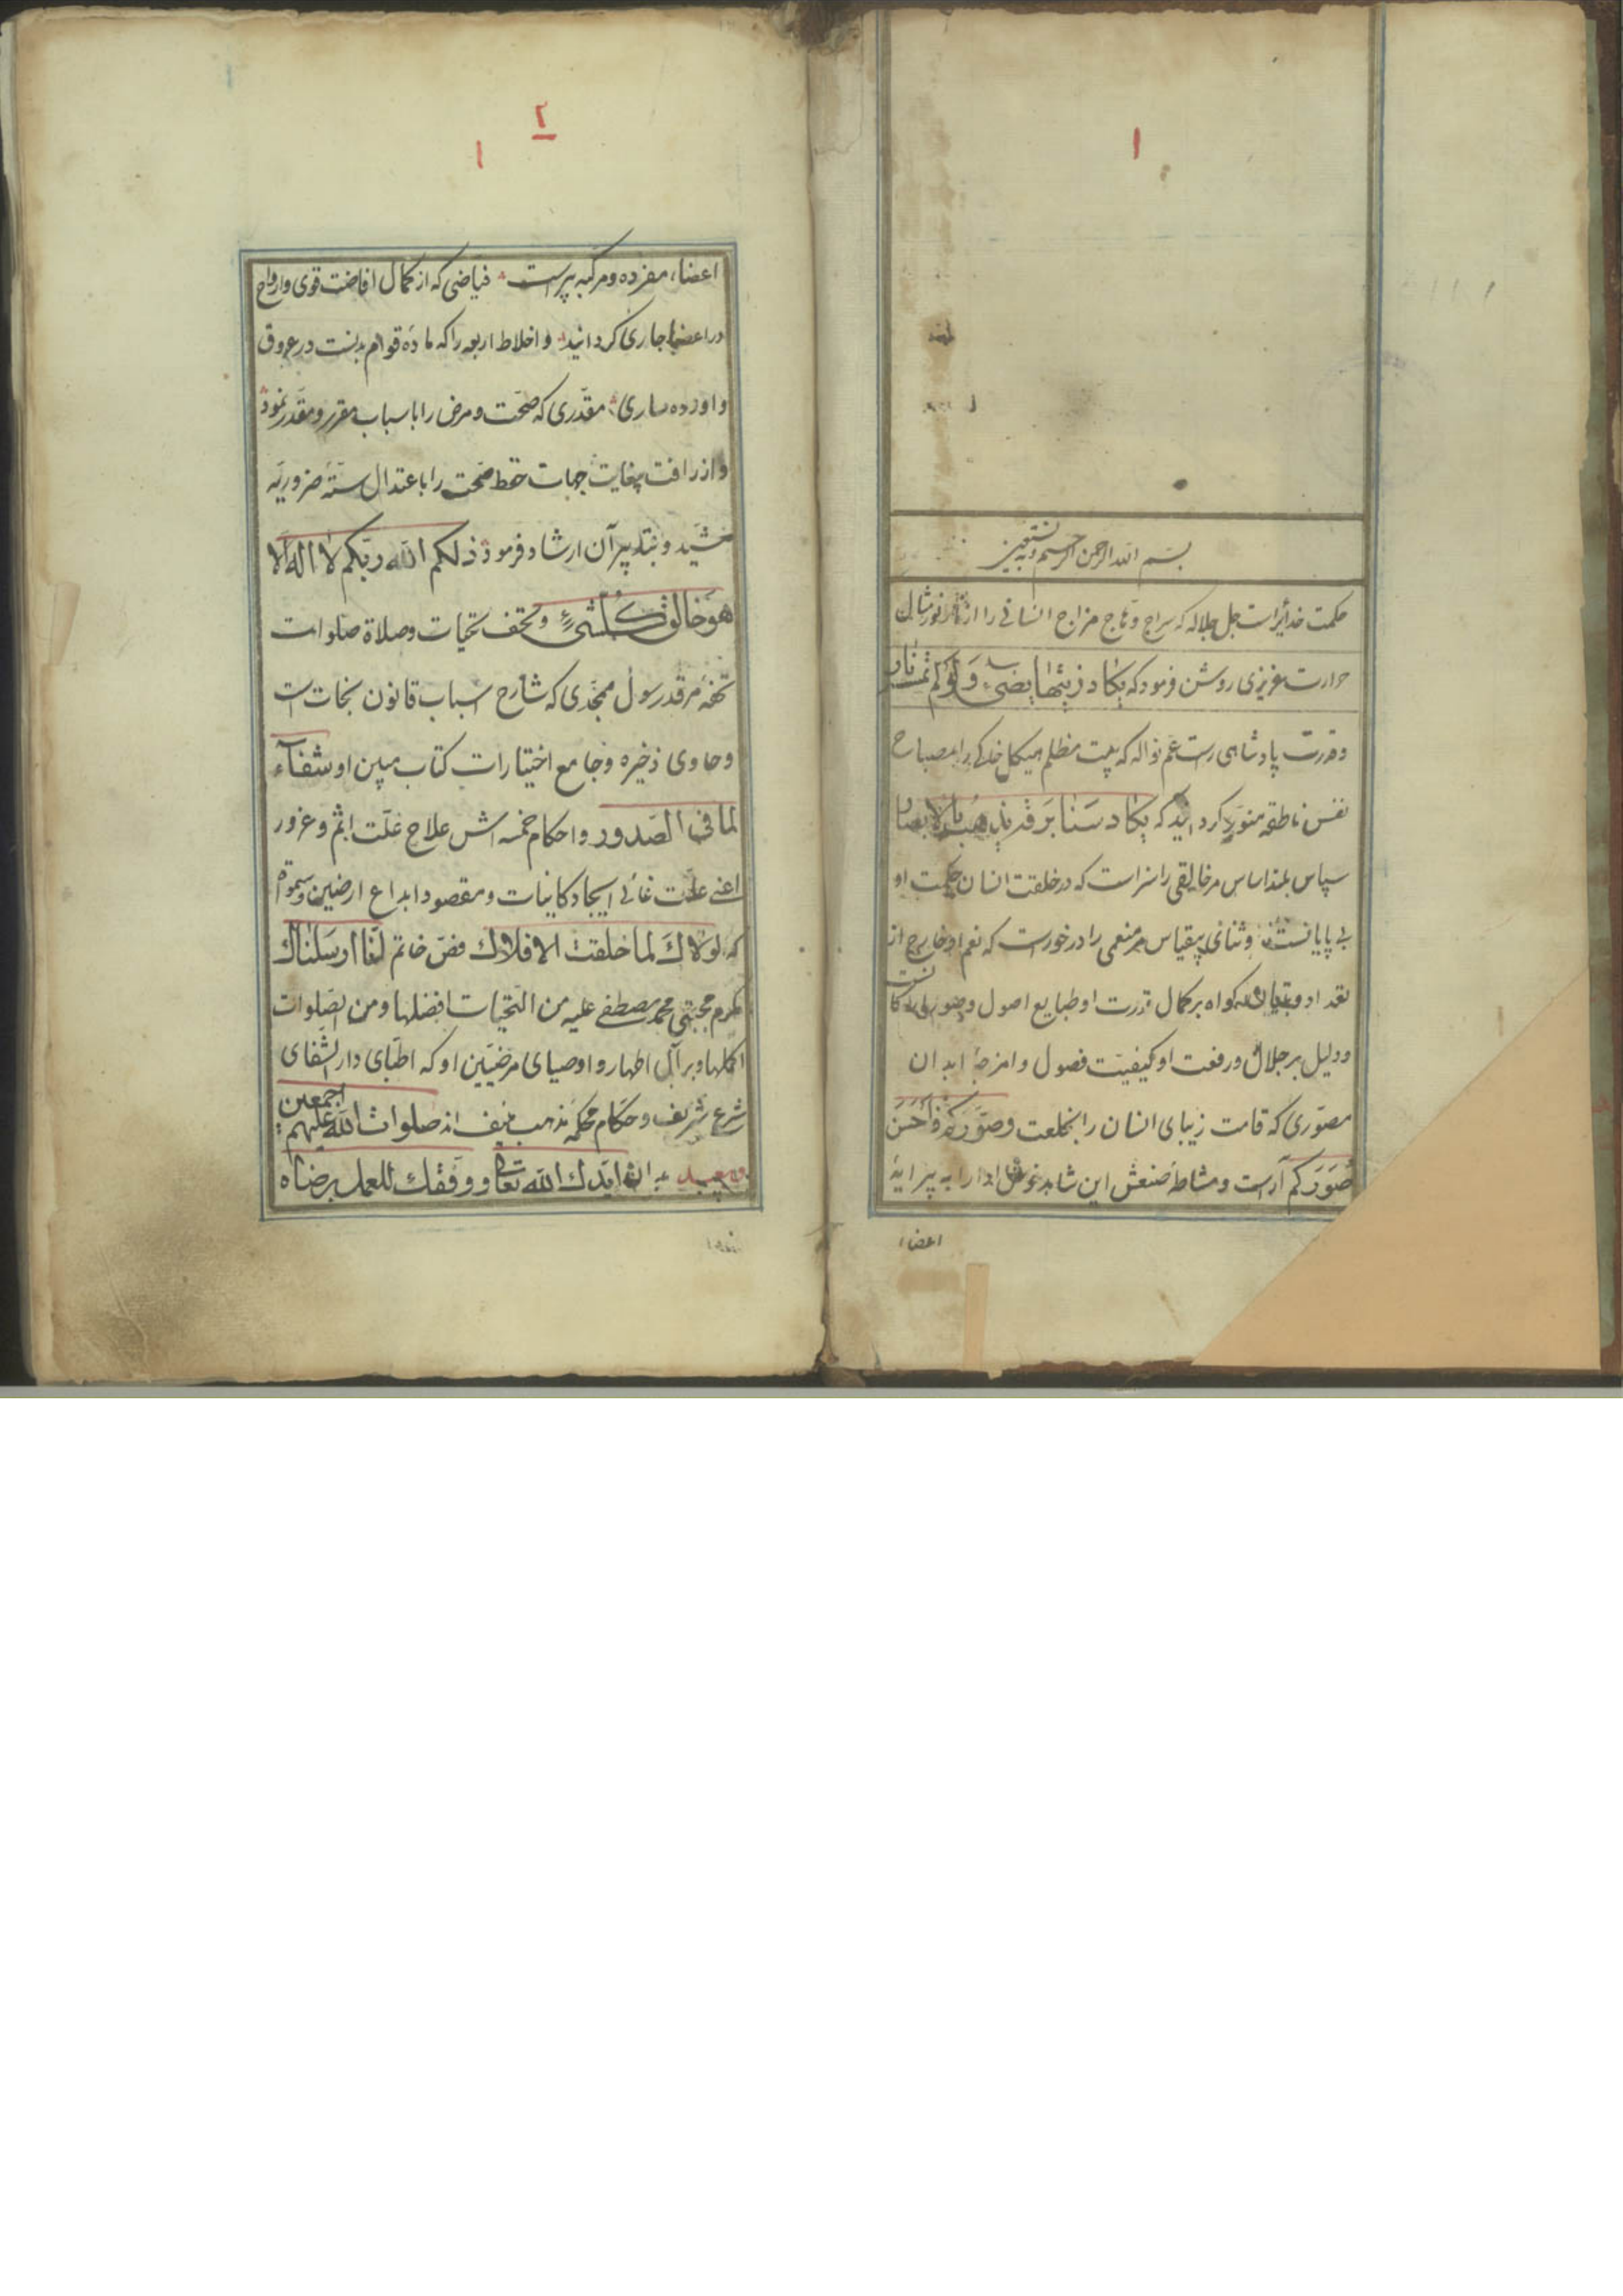 ١
بسم الله الرحمن الرحیم وبه نستعین
حکمت خدائیراست جل جلاله که سراج وهاج مزاج انسانی را از نور مثال
حرارت غریزی روشن فرمود که یکاد زیتها یضیء ولو لم تمسه نار
وقدرت پادشاهی راست عم نواله که بیت مظلم هیکل خاکی را مصباح
نفس ناطقه منور کردانید که یکاد سنا برقه یذهب بالابصار
سپاس بلند اساس مر خالقی را سزاست که در خلقت انسان حکمت او
بی پایانست وثنای بیقیاس مر منعمی را در خورست که نعم او خارج از
تعداد کواه بر کمال قدرت او طبایع اصول وصور
ودلیل بر جلال ورفعت او کیفیت فصول وامزجۀ ابدان
مصوری که قامت زیبای انسان را بخلعت وصورکم فاحسن
صورکم آراست ومشاطۀ صنعش این شاهد را به پیرایۀ
اعضا
٢
١
اعضاء مفرده ومرکبه پیراست فیاضی که از کمال افاضت قوی وارواح
در اعضا جاری کردانید واخلاط اربعه را که مادۀ قوام بدنست در عروق
واورده ساری مقدری که صحت ومرض را باسباب مقرر ومقدر نمود
واز رافت بغایت جهات حفظ صحت را باعتدال ستۀ ضروریه
بخشید وبتدبیر آن ارشاد فرمود ذلکم الله ربکم لا اله الا
هو خالق کل شیء وتحف تحیات وصلاة صلوات
تحفۀ مرقد رسول ممجدی که شارح اسباب قانون نجات است
وحاوی ذخیره وجامع اختیارات کتاب مبین او شفآء
لما فی الصدور واحکام خمسه اش علاج علت اثم وغرور
اعنی علت غائی ایجاد کاینات ومقصود ابداع ارضین وسموات
که لولاک لما خلقت الافلاک فص خاتم انا ارسلناک
مکرم مجتبی محمد مصطفی علیه من التحیات افضلها ومن الصلوات
اکملها وبر آل اطهار واوصیای مرضیین او که اطبای دار الشفای
شرع شریف وحکام محکمۀ مذهب منیف اند صلوات الله علیهم اجمعین
بدان ایدک الله تعالی ووفقک للعمل برضاه